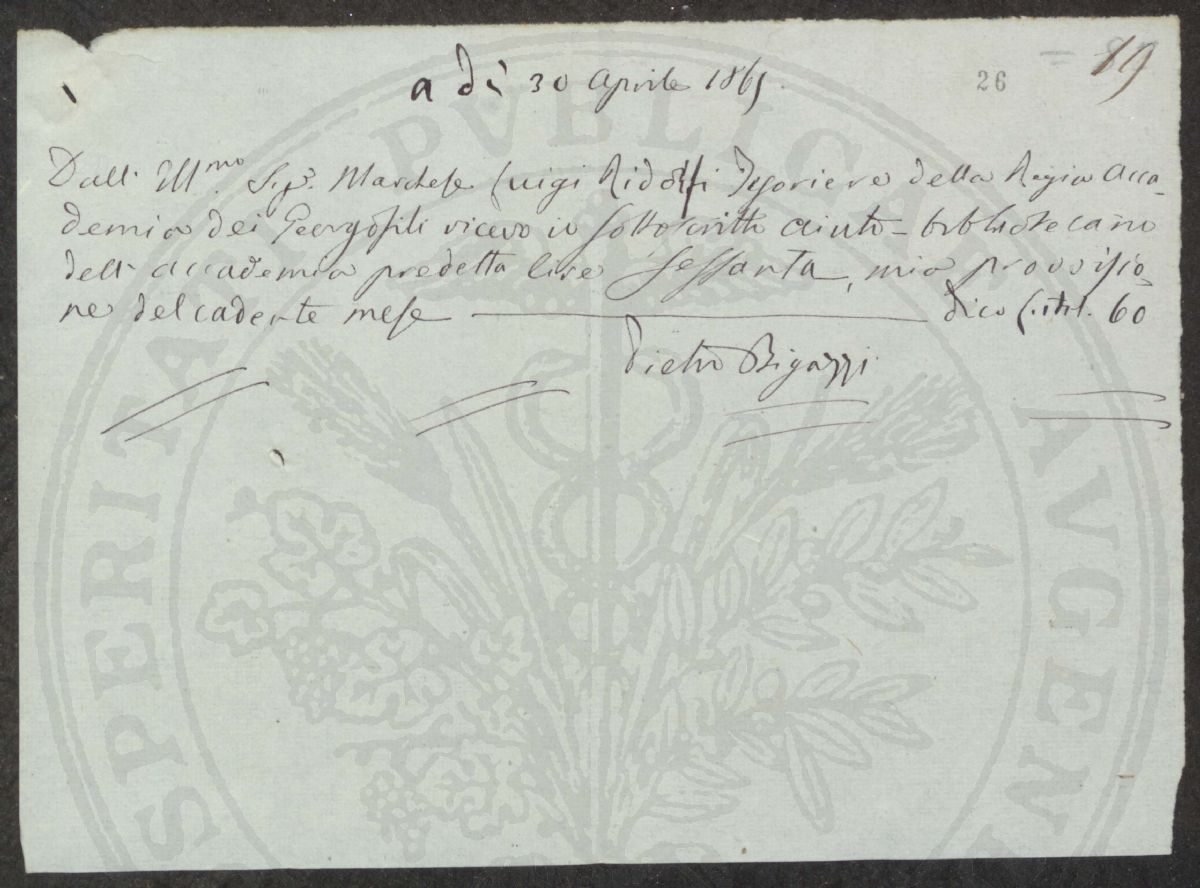 19
26
a dì 30 Aprile 1865
Dall' Ill.mo Sig.r Marchese Luigi Ridolfi Tesoriere della Regia Acca-
demia dei Georgofili ricevo io sottoscritto aiuto-bibliotecario
dell' accademia predetta lire sessanta, mia provvisio
ne del cadente mese ——— dico L. itl. 60
Pietro Bigazzi
PROSPERITATI PVBLICAE AVGENDAE